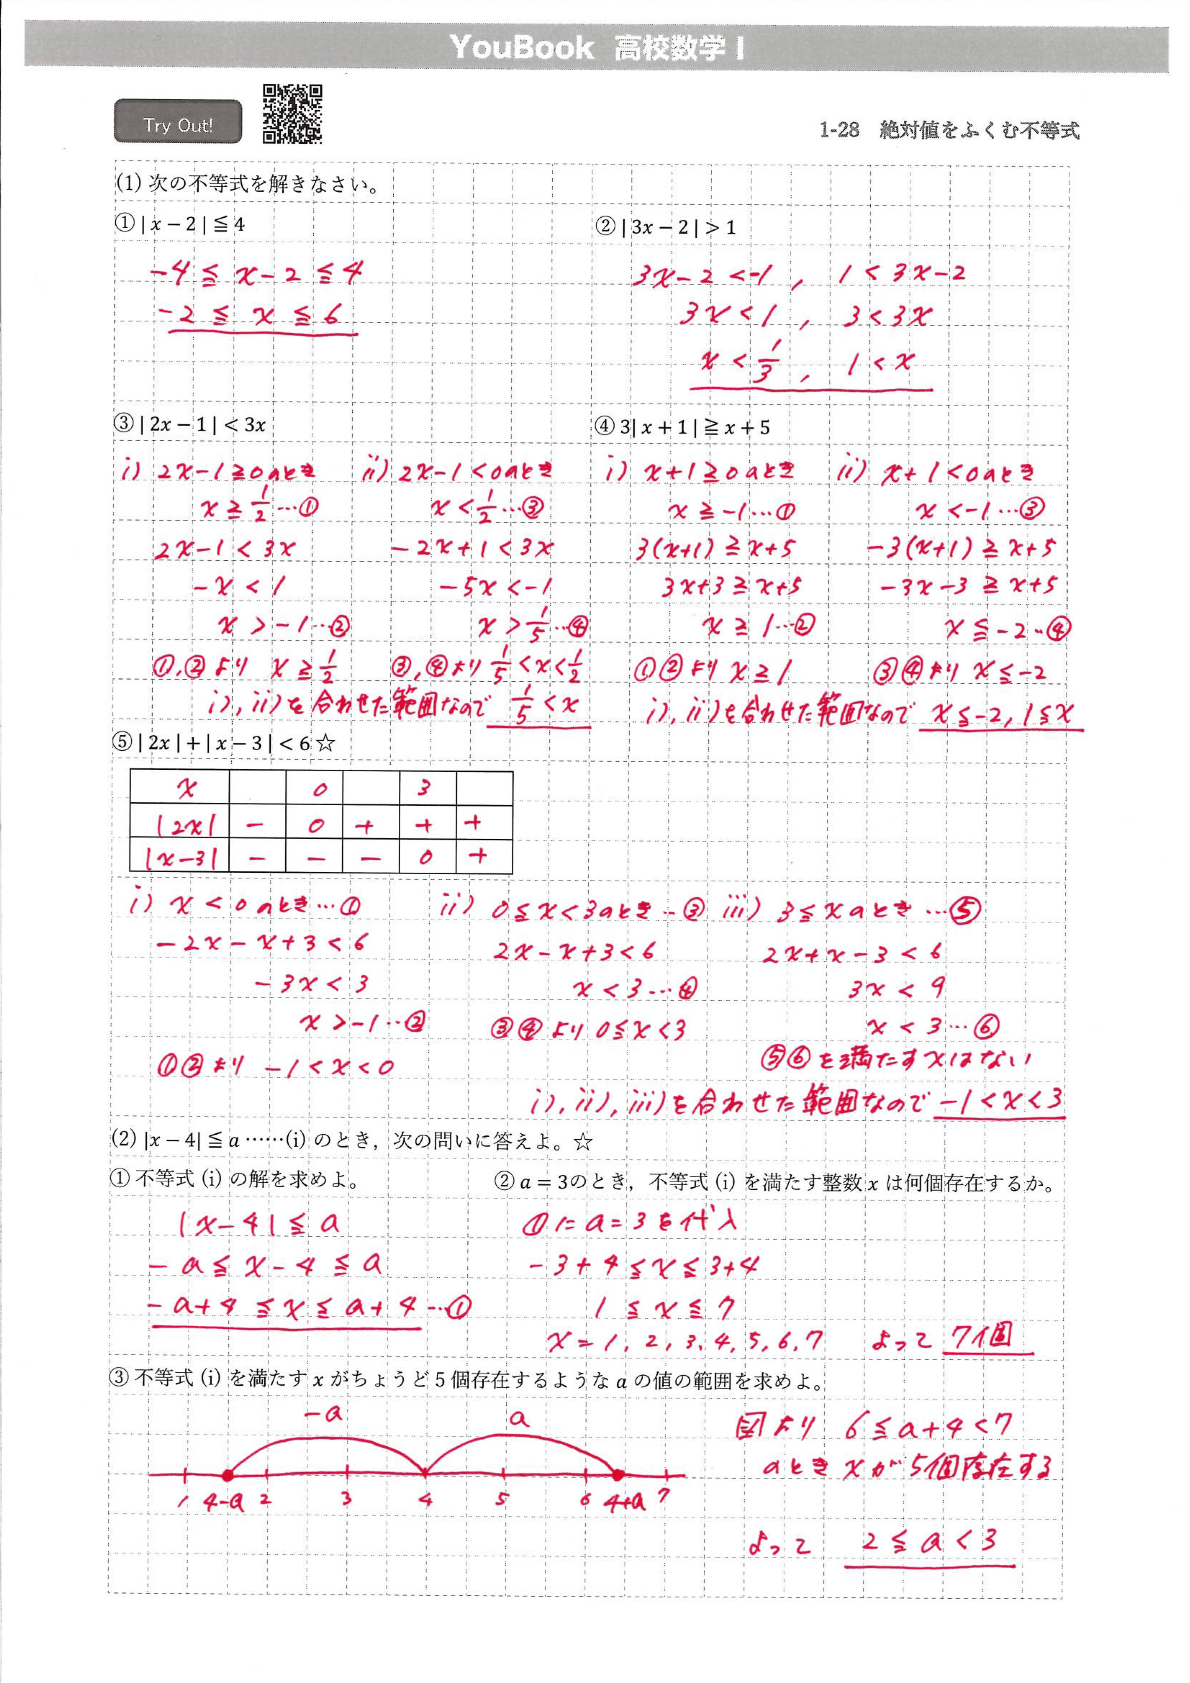 YouBook 高校数学 I
Try Out!
1-28 絶対値をふくむ不等式
(1) 次の不等式を解きなさい。
① | x − 2 | ≦ 4
-4 ≦ x - 2 ≦ 4
-2 ≦ x ≦ 6
② | 3x − 2 | > 1
3x-2 < -1 , 1 < 3x-2
3x < 1 , 3 < 3x
x < 1/3 , 1 < x
③ | 2x − 1 | < 3x
i) 2x-1 ≧ 0 のとき
x ≧ 1/2 …①
2x-1 < 3x
-x < 1
x > -1 …②
①,② より x ≧ 1/2
ii) 2x-1 < 0 のとき
x < 1/2 …③
-2x+1 < 3x
-5x < -1
x > 1/5 …④
③,④ より 1/5 < x < 1/2
i), ii) を合わせた範囲なので 1/5 < x
④ 3| x + 1 | ≧ x + 5
i) x+1 ≧ 0 のとき
x ≧ -1 …①
3(x+1) ≧ x+5
3x+3 ≧ x+5
x ≧ 1 …②
①② より x ≧ 1
ii) x+1 < 0 のとき
x < -1 …③
-3(x+1) ≧ x+5
-3x-3 ≧ x+5
x ≦ -2 …④
③④ より x ≦ -2
i), ii) を合わせた範囲なので x ≦ -2, 1 ≦ x
⑤ | 2x | + | x − 3 | < 6 ☆
x 0 3
|2x| − 0 + + +
|x-3| − − − 0 +
i) x < 0 のとき …①
-2x - x + 3 < 6
-3x < 3
x > -1 …②
①② より -1 < x < 0
ii) 0 ≦ x < 3 のとき …③
2x - x + 3 < 6
x < 3 …④
③④ より 0 ≦ x < 3
iii) 3 ≦ x のとき …⑤
2x + x - 3 < 6
3x < 9
x < 3 …⑥
⑤⑥ を満たす x はない
i), ii), iii) を合わせた範囲なので -1 < x < 3
(2) |x − 4| ≦ a ……(i) のとき, 次の問いに答えよ。☆
① 不等式 (i) の解を求めよ。
|x-4| ≦ a
-a ≦ x - 4 ≦ a
-a+4 ≦ x ≦ a+4 …①
② a = 3のとき, 不等式 (i) を満たす整数 x は何個存在するか。
①に a = 3 を代入
-3+4 ≦ x ≦ 3+4
1 ≦ x ≦ 7
x = 1, 2, 3, 4, 5, 6, 7 よって 7個
③ 不等式 (i) を満たす x がちょうど 5 個存在するような a の値の範囲を求めよ。
-a a
1 4-a 2 3 4 5 6 4+a 7
図より 6 ≦ a+4 < 7
のとき x が 5個存在する
よって 2 ≦ a < 3